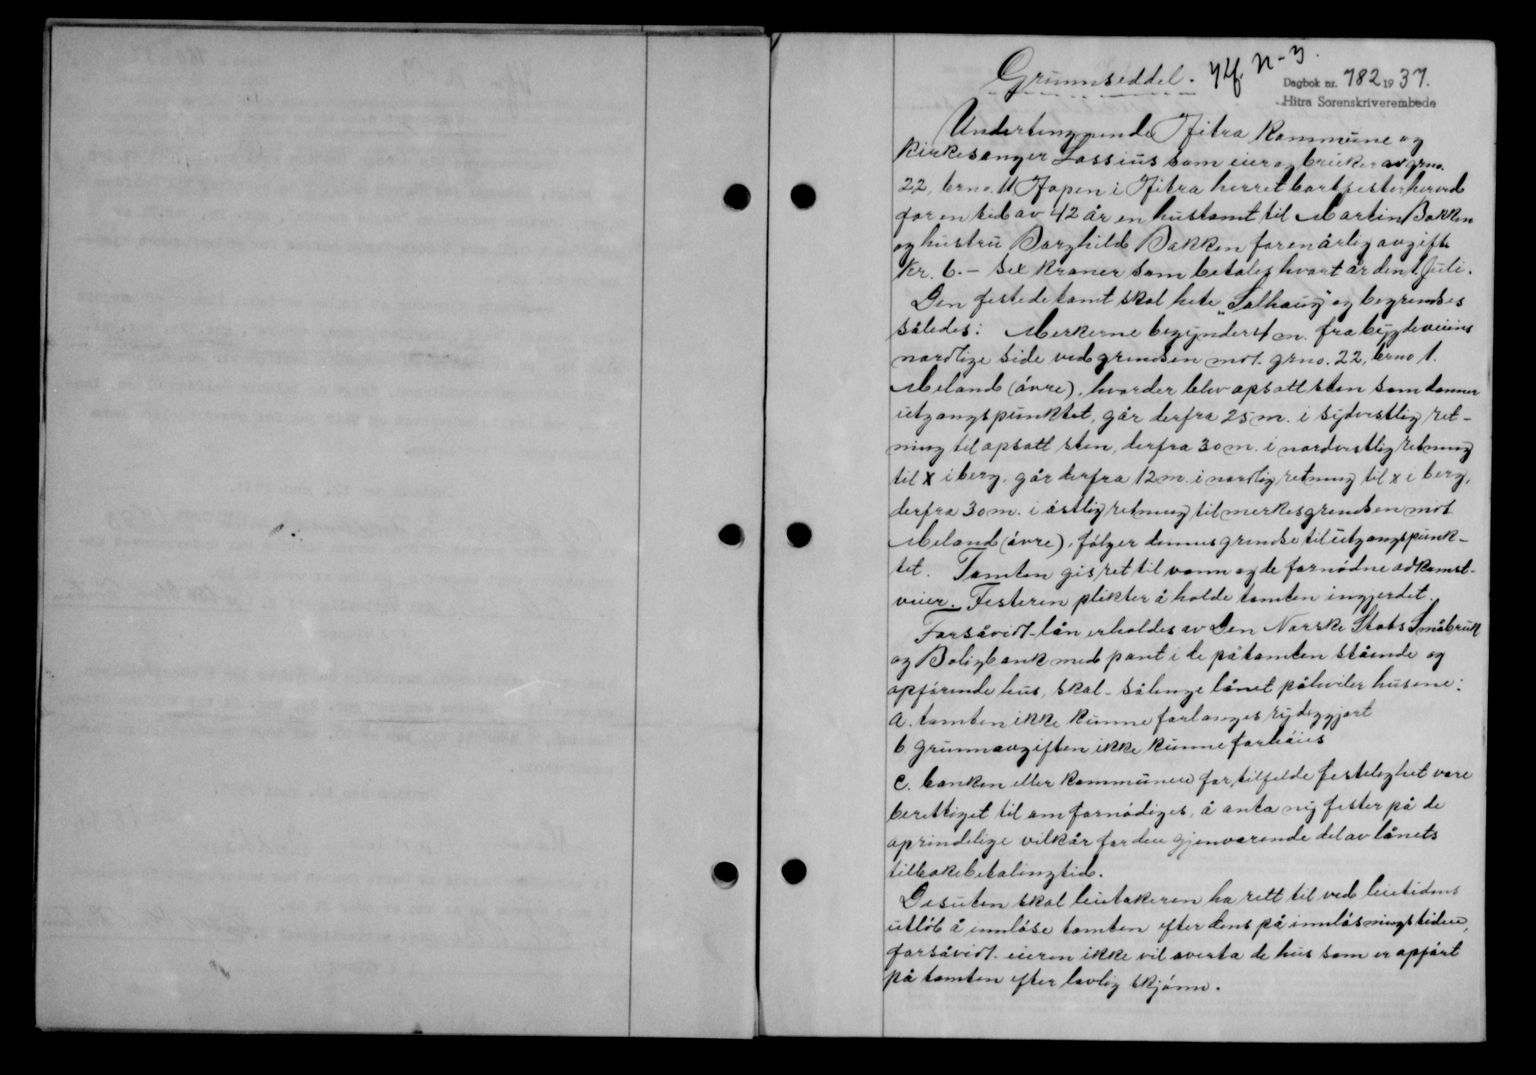 Grunnseddel.
Dagbok nr. 782 1937.
Hitra Sorenskriverembede
Undertegnende Hitra Kommune og
kirkesanger Lossius som eier og bruker av grno.
22, brno. 11 Hopen i Hitra herret bortfester herved
for en tid av 42 år en hustomt til Martin Bakken
og hustru Borghild Bakken for en årlig avgift
Kr. 6.- sex kroner som betales hvert år den 1. juli.
Den festede tomt skal hete "Solhaug" og begrenses
således: Merkerne begynder 4 m. fra bygdeveiens
nordlige side ved grensen mot. grno. 22, brno 1.
Meland (øvre), hvor der blev opsatt sten som danner
utgangspunktet, går derfra 25 m. i sydvestlig ret-
ning til opsatt sten, derfra 30 m. i nordvestlig retning
til x i berg, går derfra 12 m. i nordlig retning til x i berg,
derfra 30 m. i østlig retning til merkesgrensen mot
Meland (øvre), følger dennes grense til utgangspunk-
tet. Tomten gis ret til vann og de fornødne adkomst-
veier. Festeren plikter å holde tomten inngjerdet.
Forsåvidt lån erholdes av Den Norske Stats Småbruk
og Boligbank med pant i de på tomten stående og
opførende hus, skal - sålenge lånet påhviler husene:
a. tomten ikke kunne forlanges ryddiggjort
b. grunnavgiften ikke kunne forhøies
c. banken eller kommunen for tilfelde festeleghet være
berettiget til om fornødiges, å anta ny fester på de
oprindelige vilkår for den gjenværende del av lånets
tilbakebetalingtid.
Desuten skal leietakeren ha rett til ved leietidens
utløb å innløse tomten efter dens på innløsningstiden,
forsåvidt eieren ikke vil overta de hus som er opført
på tomten efter lovlig skjønn.